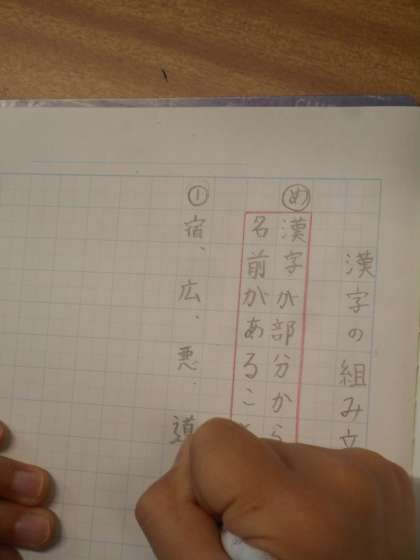 漢字の組み立
め
漢字が部分から
名前があること
①
宿、広、悪、道